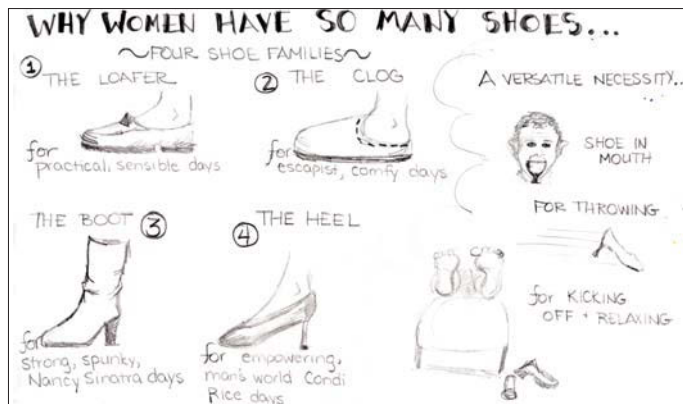 WHY WOMEN HAVE SO MANY SHOES...
~FOUR SHOE FAMILIES~
1
THE LOAFER
for
practical, sensible days
2
THE CLOG
for
escapist, comfy days
THE BOOT 3
for
strong, spunky,
Nancy Sinatra days
4
THE HEEL
for empowering,
man's world Condi
Rice days
A VERSATILE NECESSITY...
SHOE IN
MOUTH
FOR THROWING
for KICKING
OFF + RELAXING